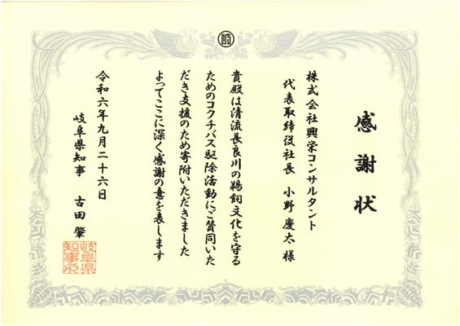 感謝状
株式会社興栄コンサルタント
代表取締役社長 小野慶太様
貴殿は清流長良川の鵜飼文化を守る
ためのコクチバス駆除活動にご賛同いた
だき支援のため寄附いただきました
よってここに深く感謝の意を表します
令和六年九月二十六日
岐阜県知事 古田肇
岐阜県
知事之印